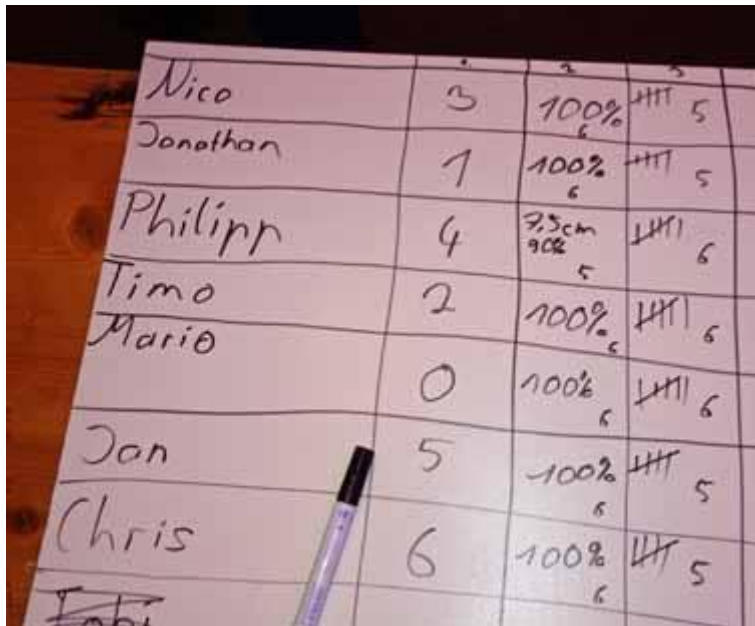 1 2 3
Nico 3 100% 6 5
Jonathan 1 100% 6 5
Philipp 4 7,5cm 90% 5 6
Timo 2 100% 6 6
Mario 0 100% 6 6
Jan 5 100% 6 5
Chris 6 100% 6 5
Tobi